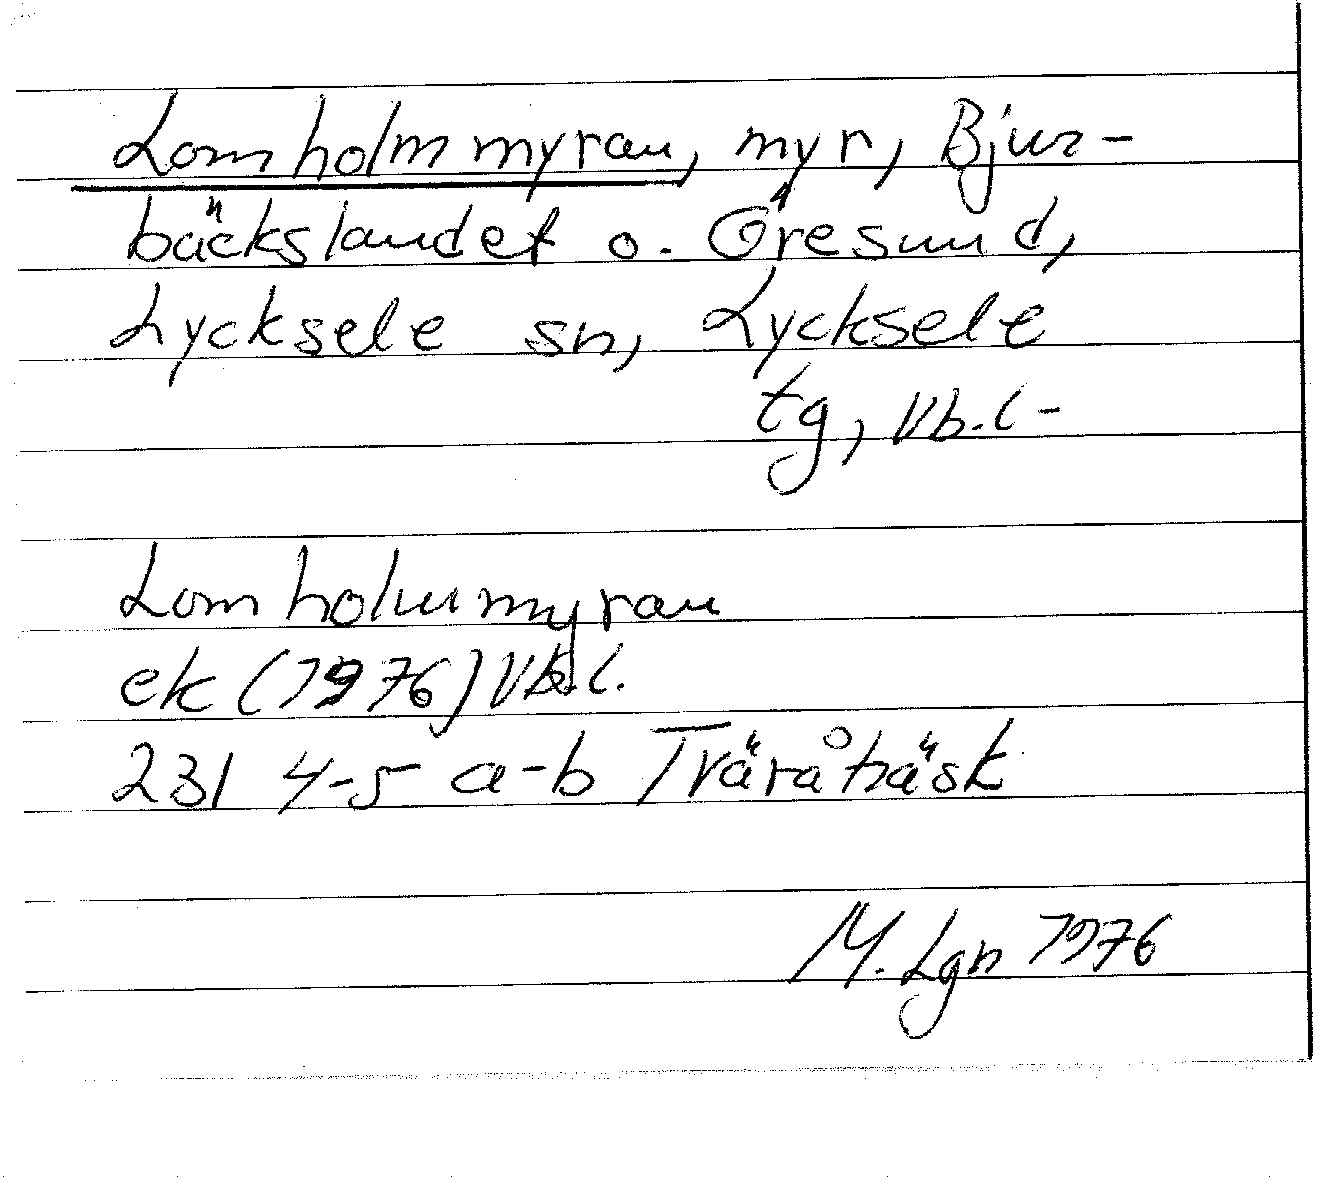 Lomholmmyran, myr, Bjur-
bäckslandet o. Öresund,
Lycksele sn, Lycksele
tg, Vb.l-
Lomholmmyran
ek (1976) Vb.l.
231 4-5 a-b Tväråträsk
M. Lgn 1976